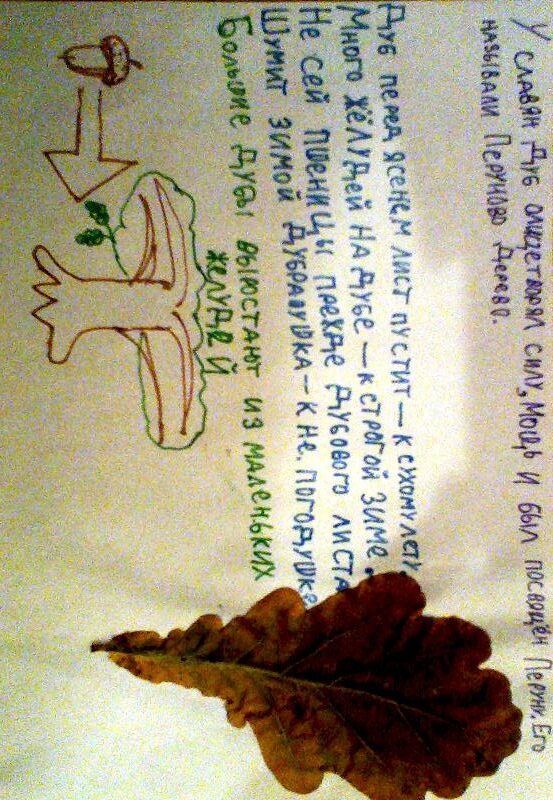 У славян дуб олицетворял силу, мощь и был посвящён Перуну. Его
называли Перуново дерево.
Дуб перед ясенем лист пустит — к сухому лету.
Много жёлудей на дубе — к строгой зиме.
Не сей пшеницы прежде дубового листа
Шумит зимой дубравушка — к не погодушке
Большие дубы выростают из маленьких
желудей